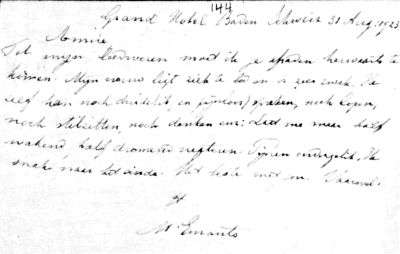 144
Grand Hotel Baden Schweiz 31 Aug. 1923
Amice
Tot mijn leedwezen moet ik je afraden herwaarts te
komen. Mijn vrouw ligt ziek te bed en is zeer zwak. Ik
zelf kan noch duidelijk en pijnloos spreken, noch loopen,
noch stilzitten, noch denken enz: Laat me maar half
wakend, half droomend vegeteren. Pijnen onverpoosd. Ik
snak naar het einde. Het beste met jou. Vaarwel.
tt
M. Emants